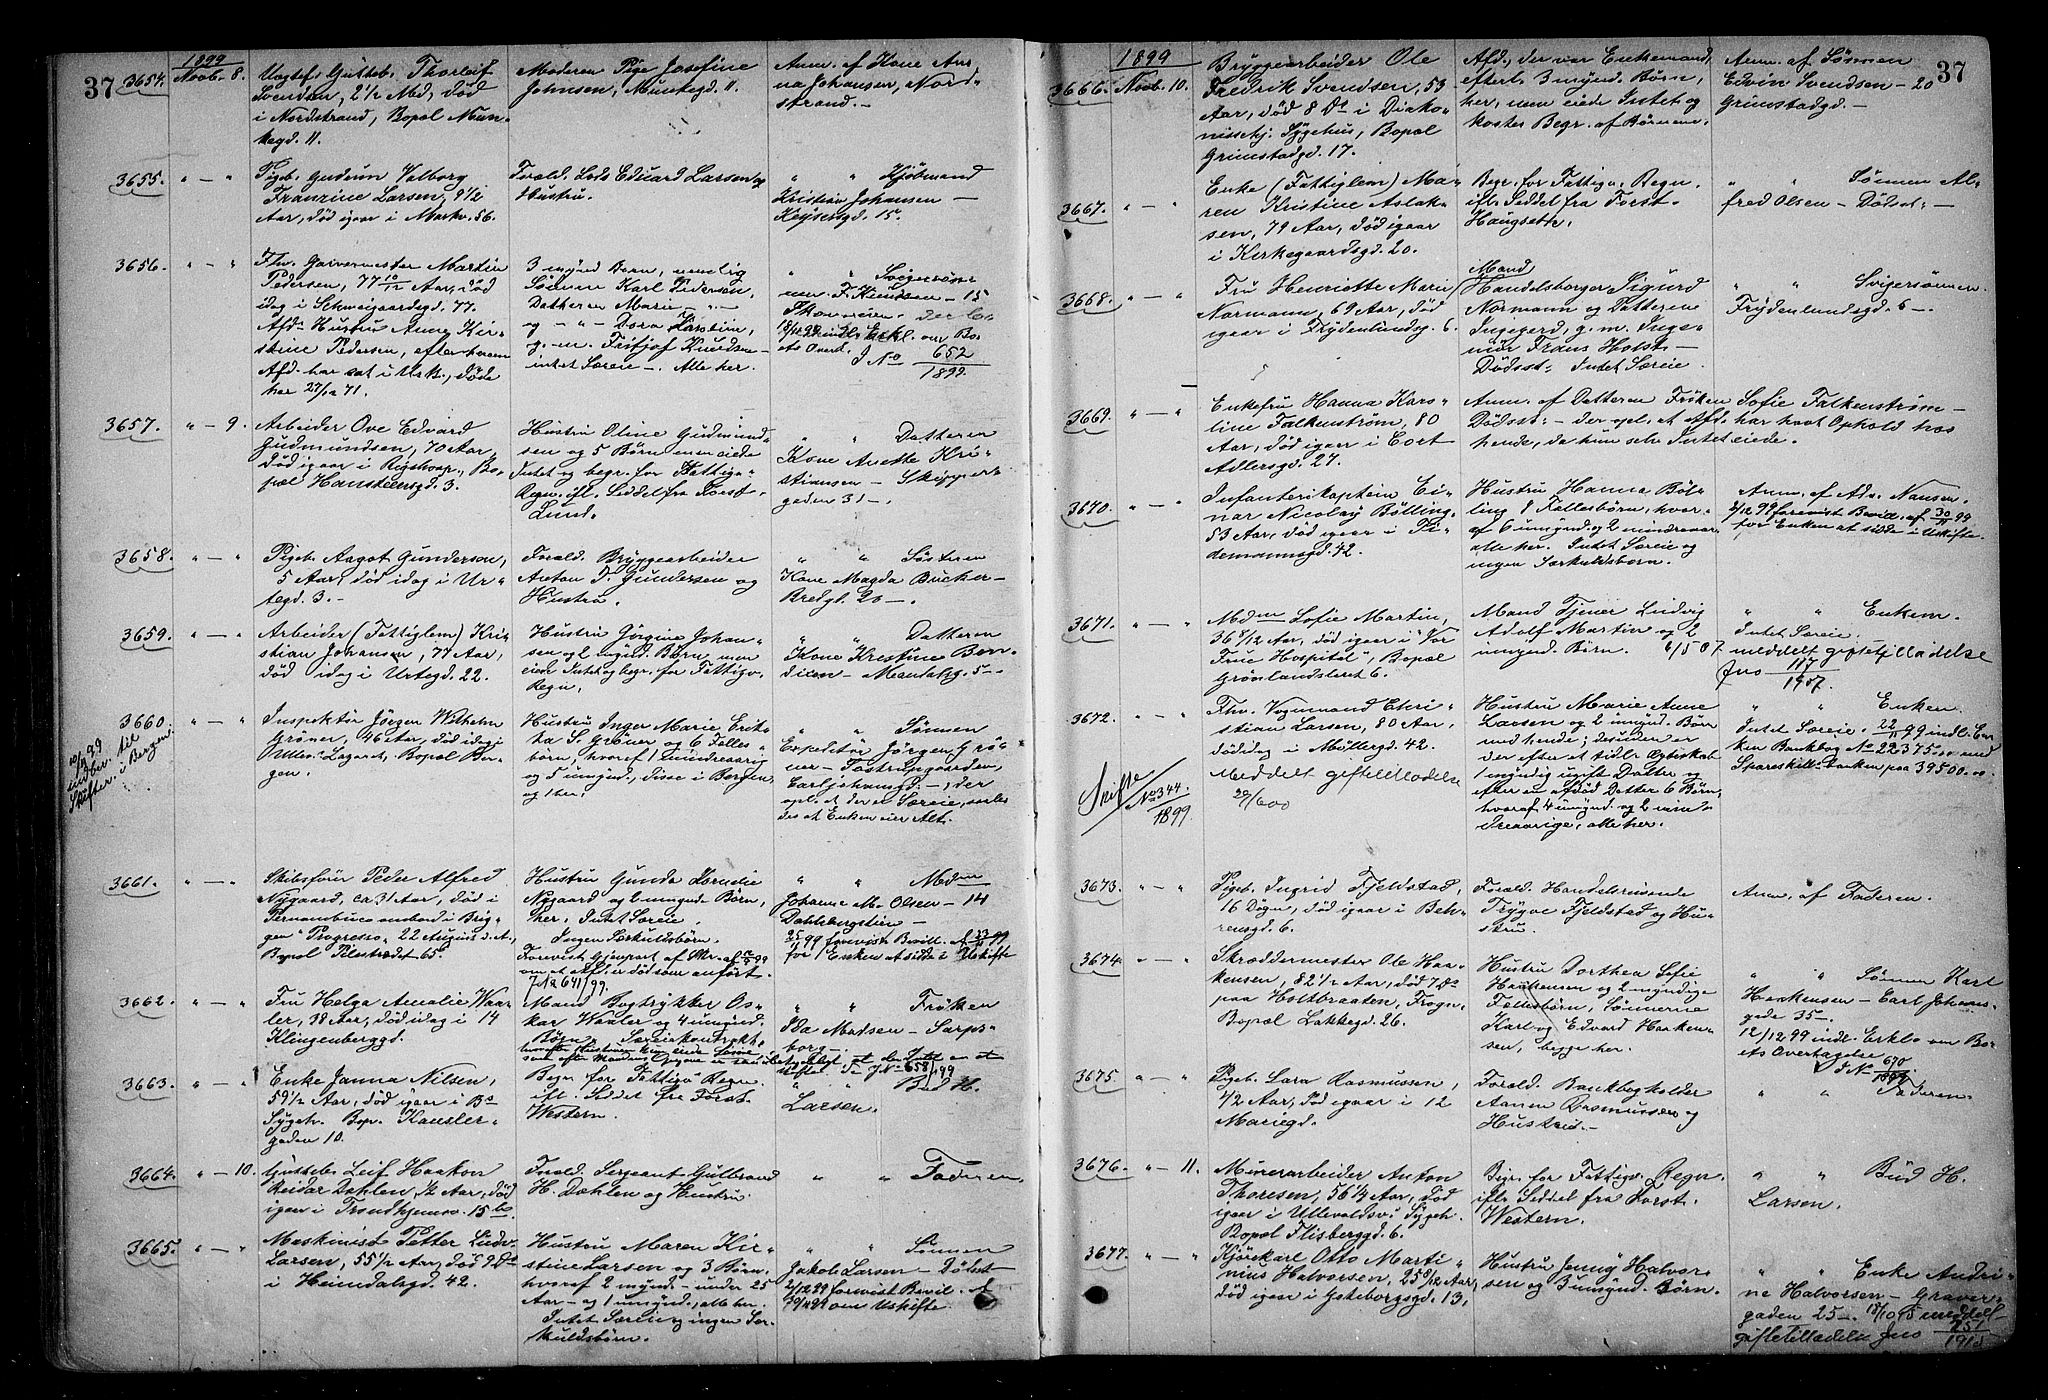 37
1899
3654. Novb. 8.
Uægtef. Gutteb. Thorleif
Svendsen, 2 1/2 Md, død
i Nordstrand, Bopæl Mun-
kegd. 11.
Moderen Pige Josefine
Johnsen, Munkegd. 11.
Anm. af Kone An-
na Johansen, Nord-
strand. -
3655. " - "
Pigeb. Gudrun Valborg
Franzine Larsen, 9 1/2
Aar, død igaar i Markv. 86.
Forald. Lods Eduard Larsen og
Hustru.
" " Kjøbmand
Kristian Johansen -
Keysersgd. 15.
3656. " - "
Fhv. Garvermester Martin
Pedersen, 77 10/12 Aar, død
idag i Schweigaardsgd. 77.
Afdt. Hustru Anne Kir-
stine Pedersen, efter hvem
Afd. har sat i Usk., døde
her 27/12 71.
3 mynd Børn, nemlig
Sønnen Karl Pedersen,
Datteren Marie " -
og - " - Dora Jacobine,
g. m. Fritjof Knudsen -
intet Særeie -. Alle her.
" " Svigersøn-
nen F. Knudsen - 15
18/12 99 indl. Erkl. om Bo-
ets Overt.
J No 652/1899.
3657. " - 9.
Arbeider Ove Edvard
Gudmundsen, 70 Aar,
død igaar i Rigshosp., Bo-
pæl Hansteensgd. 3.
Hustru Oline Gudmund-
sen og 5 Børn, men eiede
Intet og begr. for Fattigv.
Regn. ifl. Seddel fra Forst.
Lund.
" " Datteren
Kone Anette Kri-
stiansen - Skipper-
gaden 31 -.
3658. " - "
Pigeb. Aagot Gundersen,
5 Aar, død idag i Ur-
tegd. 3. -
Forald. Bryggearbeider
Anton T. Gundersen og
Hustru.
" " Søstren
Kone Magda Bücher -
Bredgd. 20 -.
3659. " - "
Arbeider (Fattiglem) Kri-
stian Johansen, 77 Aar,
død idag i Urtegd. 22.
Hustru Jørgine Johan-
sen og 2 myndt. Børn, men
eiede Intet og begr. for Fattigv.
Regn.
" " Datteren
Kone Kristine Ben-
dixen - Mandalsg. 5 -
3660. " - "
10/11 99
indber. til
Skifter. i Bergen.
Inspektør Jørgen Wilhelm
Grøner, 46 Aar, død idag i
Ullev. Lazaret, Bopæl Ber-
gen.
Hustru Inger Marie Erik-
ka S. Grøner og 6 Fælles-
børn, hvoraf 1 mindreaarig
og 5 umynd., disse i Bergen
og 1 her.
" " Sønnen
Expeditør Jørgen Grø-
ner - Tostrupgaarden,
Carl johansgd. -, der
opl. at der er Særeie, saale-
des at Enken eier Alt.
3661. " - "
Skibsfører Peder Alfred
Nygaard, ca 31 Aar, død i
Pernambuco ombord i Brig-
gen "Progresso" 22 August d. A.,
Bopæl Pilestrædet 65.
Hustru Gunda Kornelie
Nygaard og 2 umynd. Børn,
her. Intet Særeie.
Ingen Særkuldsbørn.
om at Afd. er død som anført.
J No 641/99.
" " Mdm
Johanne M. Olsen - 14
Dahlsbergstien -
25/11 99 forevist Bevill. af 23/11 99
for Enken at sidde i Uskifte
3662. " - "
Fru Helga Amalie Waa-
ler, 38 Aar, død idag i 14
Klingenberggd.
Mand Bogtrykker Os-
kar Waaler og 4 umynd.
Børn. Særeiekontrakt,
" " Frøken
Ida Madsen - Sarps-
borg -
J No 658/99
3663. " - "
Enke Janna Nilsen,
59 1/2 Aar, død igaar i Bs
Sygeh. Bop. Kansler-
gaden 10.
Begr. for Fattigv. Regn.
ifl. Seddel fra Forst.
Western.
" " Bud H.
Larsen.
3664. " - 10.
Gutteb. Leif Haakon
Reidar Dæhlen, 1/2 Aar, død
igaar i Trondhjemsv. 15 b.
Forald. Sergeant Gulbrand
H. Dæhlen og Hustru
" " Faderen.
3665. " - "
Maskinist Petter Ludv.
Larsen, 55 1/2 Aar, død 9 Ds
i Heimdalsgd. 42.
Hustru Maren Kir-
stine Larsen og 3 Børn,
hvoraf 2 mynd - under 25
Aar - og 1 umynd., alle her.
Intet Særeie og ingen Sær-
kuldsbørn.
" " Sønnen
Jakob Larsen - Dødst.
2/12 99 forevist Bevil. af
30/11 99 om Uskifte
37
1899
3666. Novb. 10.
Bryggearbeider Ole
Fredrik Svendsen, 53
Aar, død 8 Ds i Diako-
nissehj. Sygehus, Bopæl
Grimstadgd. 17.
Afd., der var Enkemand,
efterl. 3 mynd. Børn,
her, men eiede Intet og
kostes Begr. af Børnene.
Anm. af Sønnen
Edvin Svendsen - 20
Grimstadgd. -
3667. " - "
Enke (Fattiglem) Ma-
ren Kristine Aslak-
sen, 79 Aar, død igaar
i Kirkegaardsgd. 20.
Begr. for Fattigv. Regn.
ifl. Seddel fra Forst.
Haugseth.
" " Sønnen Al-
fred Olsen - Dødsst. -
3668. " - "
Fru Henriette Marie
Normann, 69 Aar, død
igaar i Frydenlundsg. 6.
Mand
Handelsborger Sigurd
Normann og Datteren
Ingegerd, g. m. Inge-
niør Frans Holst -
Dødsst. Intet Særeie.
" " Svigersønnen.
Frydenlundsgd. 6 -.
3669. " - "
Enkefru Hanna Karo-
line Falkenstrøm, 80
Aar, død igaar i Cort
Adlersgd. 27.
Anm. af Datteren Frøken Sofie Falkenstrøm -
Dødsst. - der opl. at Afd. har havt Ophold hos
hende, da hun selv Intet eiede.
3670. " - "
Infanterikaptein Ei-
nar Nicolay Bølling,
53 Aar, død igaar i Ti-
demannsgd. 42.
Hustru Hanna Bøl-
ling, 8 Fællesbørn, hvor-
af 6 umynd og 2 mindreaar.
alle her. Intet Særeie og
ingen Særkuldsbørn.
Anm. af Adv. Nansen.
2/12 99 forevist Bevill. af 30/11 99
for Enken at sidde i Uskifte.
3671. " - "
Mdm Sofie Martin,
36 8/12 Aar, død igaar i "Vor
Frue Hospital", Bopæl
Grønlandsleret 6.
Mand Tjener Ludvig
Adolf Martin og 2
umynd. Børn.
" " Enkem.
Intet Særeie.
6/5 07 meddelt giftetilladelse
Jno 117/1907.
3672. " - "
Skifte
No 344/1899
Fhv. Vognmand Chri-
stian Larsen, 80 Aar,
død idag i Møllergd. 42.
Meddelt giftetilladelse
20/6 00
Hustru Marie Anne
Larsen og 2 umynd. Børn
med hende; desuden er
der efter et tidl. Ægteskab
1 myndig ugift Datter og
efter en afdød Datter 6 Børn,
hvoraf 4 umynd. og 2 min-
dreaarige, alle her.
" " Enken.
Intet Særeie. 22/11 99 indl. En-
ken Bankbog No 22375 ved
Spareskill. Banken paa 39500.00
3673. " - "
Pigeb. Ingrid Fjeldstad,
16 Døgn, død igaar i Beh-
rensgd. 6.
Forald. Handelsreisende
Trygve Fjeldstad og Hu-
stru.
Anm. af Faderen.
3674. " - "
Skræddermester Ole Haa-
kensen, 82 1/2 Aar, død 7 Ds
paa Holtbraaten, Frogn.
Bopæl Lakkegd. 26.
Hustru Dorthea Sofie
Haakensen og 2 myndige
Fællesbørn, Sønnerne
Karl og Edvard Haaken-
sen, begge her.
" " Sønnen Karl
Haakensen - Carl Johans-
gade 35 -.
12/12 99 indl. Erkl. om Bo-
ets Overtagelse
J No 670/1899
3675 " - "
Pigeb. Lara Rasmussen,
1/2 Aar, død igaar i 12
Mariegd.
Forald. Bankbogholder
Aanen Rasmussen og
Hustru. -
" " Faderen.
3676. " - 11.
Murerarbeider Anton
Thoresen, 56 1/2 Aar, død
igaar i Ullevoldsv. Sygeh.
Bopæl Flisberggd. 6.
Begr. for Fattigv. Regn.
iflr. Seddel fra Forst.
Western.
" " Bud H.
Larsen.
3677. " - "
Kjørekarl Otto Marti-
nius Halvorsen, 25 8/12 Aar,
død igaar i Gøteborgsgd. 13,
Hustru Jenny Halvor-
sen og 3 umynd. Børn.
" " Enke Andri-
ne Halvorsen - Graver-
gaden 25 -. 18/10 15 meddelt
giftetilladelse Jno 251/1915